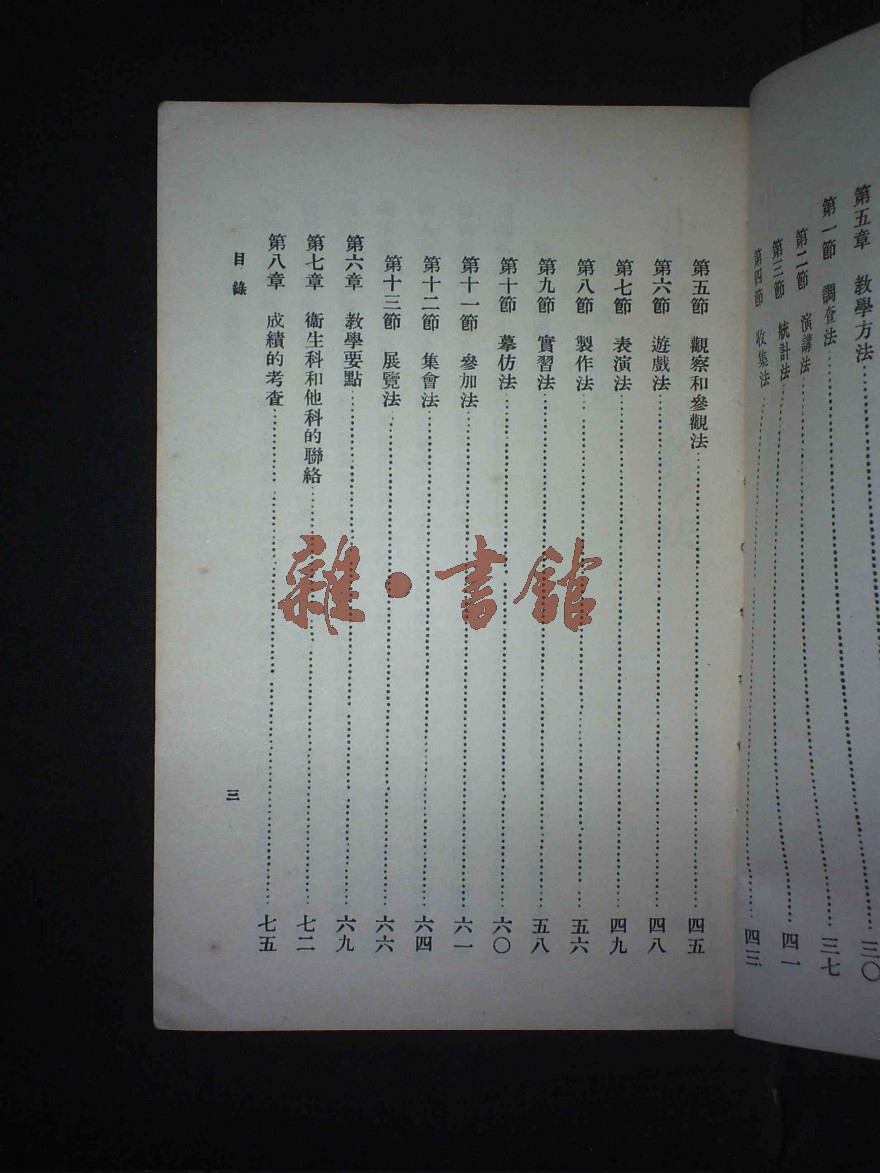 第五章 教學方法 三〇
第一節 調查法 三七
第二節 演講法 四一
第三節 統計法
第四節 收集法 四三
第五節 觀察和參觀法 四五
第六節 遊戲法 四八
第七節 表演法 四九
第八節 製作法 五六
第九節 實習法 五八
第十節 摹仿法 六〇
第十一節 參加法 六一
第十二節 集會法 六四
第十三節 展覽法 六六
第六章 教學要點 六九
第七章 衞生科和他科的聯絡 七二
第八章 成績的考查 七五
目錄 三
雜·書館